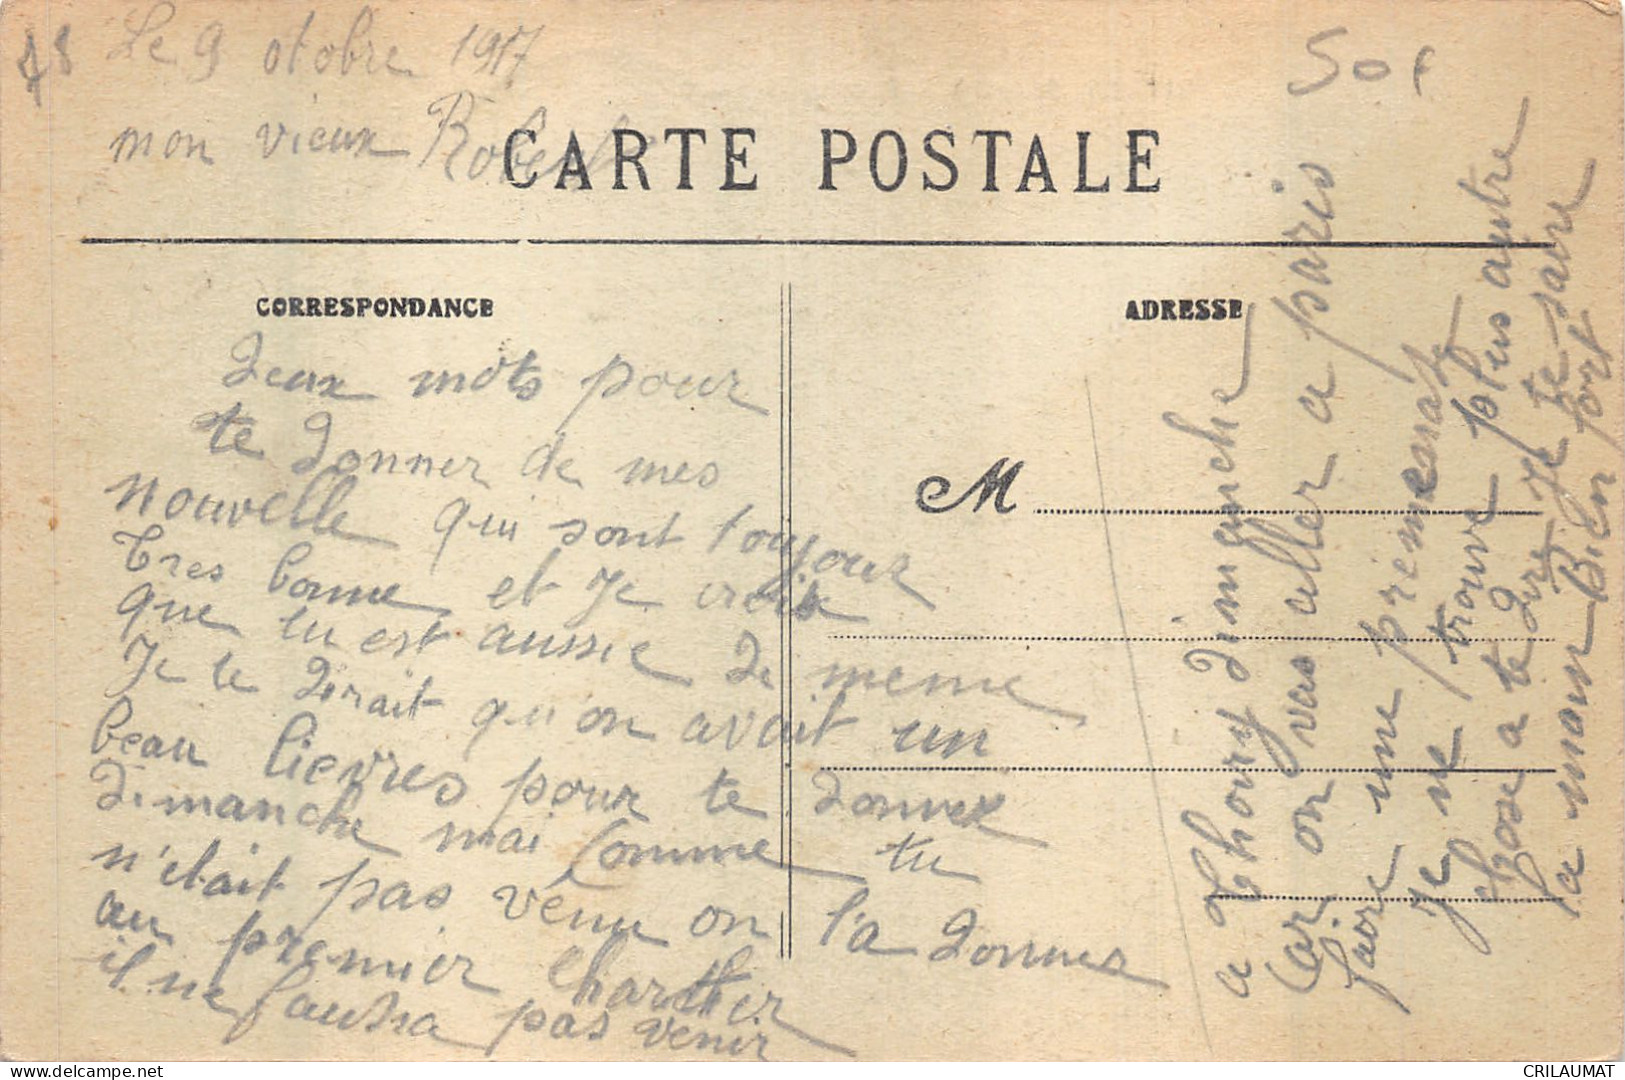 78 Le 9 otobre 1917
50f
mon vieux Robert
CARTE POSTALE
CORRESPONDANCE
ADRESSE
M
Deux mots pour
te donner de mes
nouvelle qui sont toujour
tres bonne et Je croix
que tu est aussie de meme
Je te dirait qu'on avait un
beau lievres pour te donner
dimanche mai comme tu
n'etait pas venu on l'a donner
au premier Chartier
il ne faudra pas venir
a Thoiry dimanche
Car on vas aller a paris
faire une priemessate
Je ne trouve plus autre
chose a te dire Je te saire
la main Bien fort
CRILAUMAT